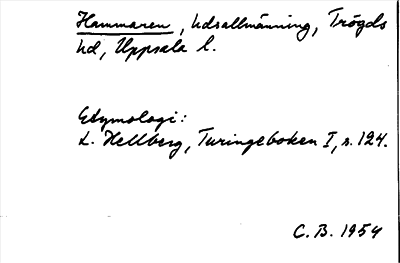 Hammaren, hdsallmänning, Trögds
hd, Uppsala l.
Etymologi:
L. Hellberg, Turingeboken I, s. 124.
C. B. 1954